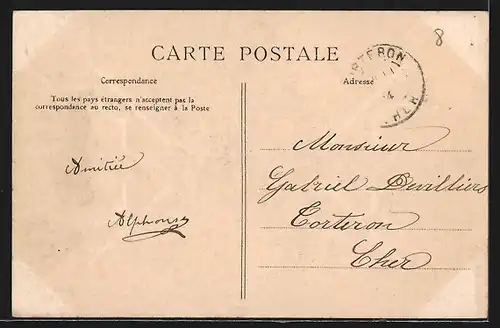 8
CARTE POSTALE
Correspondance
Adresse
Tous les pays étrangers n'acceptent pas la
correspondance au recto, se renseigner à la Poste
Amitiée
Alphonse
Monsieur
Gabriel Devilliers
Torteron
Cher
RTERON
CHER